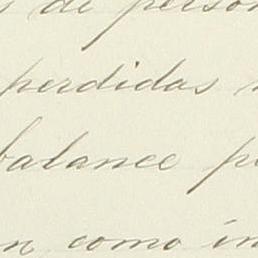 de person
perdidas
balance p
como in